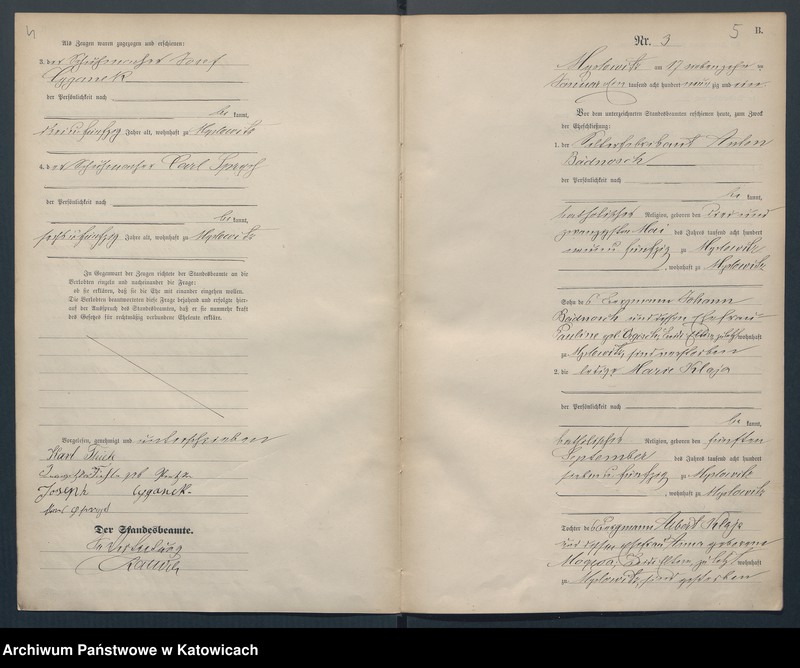 4
Als Zeugen waren zugezogen und erschienen:
3. der Schuhmacher Josef
Cyganek
der Persönlichkeit nach
be kannt,
Jahre alt, wohnhaft zu Myslowitz
4. der Schuhmacher Carl
der Persönlichkeit nach
be kannt,
sechs u fünfzig Jahre alt, wohnhaft zu Myslowitz
In Gegenwart der Zeugen richtete der Standesbeamte an die
Verlobten einzeln und nacheinander die Frage:
ob sie erklären, daß sie die Ehe mit einander eingehen wollen.
Die Verlobten beantworteten diese Frage bejahend und erfolgte hier-
auf der Ausspruch des Standesbeamten, daß er sie nunmehr kraft
des Gesetzes für rechtmäßig verbundene Eheleute erkläre.
Vorgelesen, genehmigt und unterschrieben
Karl
Joseph Cyganek.
Der Standesbeamte.
In Vertretung
5
B.
Nr. 3
Myslowitz am 17 siebenzehn ten
Januar tausend acht hundert neun zig und eins
Vor dem unterzeichneten Standesbeamten erschienen heute, zum Zweck
der Eheschließung:
1. der Anton
Badnosch
der Persönlichkeit nach
be kannt,
katholischer Religion, geboren den drei und
zwanzigsten Mai des Jahres tausend acht hundert
fünfzig zu Myslowitz
, wohnhaft zu Myslowitz
Sohn des Bergmann Johann
Badnosch und dessen Ehefrau
Pauline geb. wohnhaft
zu Myslowitz, sind verstorben
2. die ledige Marie Klaja
der Persönlichkeit nach
be kannt,
katholischer Religion, geboren den fünften
September des Jahres tausend acht hundert
sieben u fünfzig zu Myslowitz
, wohnhaft zu Myslowitz
Tochter des Bergmann Albert Klaja
und dessen Ehefrau Anna geborene
beide Eltern, zuletzt wohnhaft
zu Myslowitz, sind gestorben
Archiwum Państwowe w Katowicach